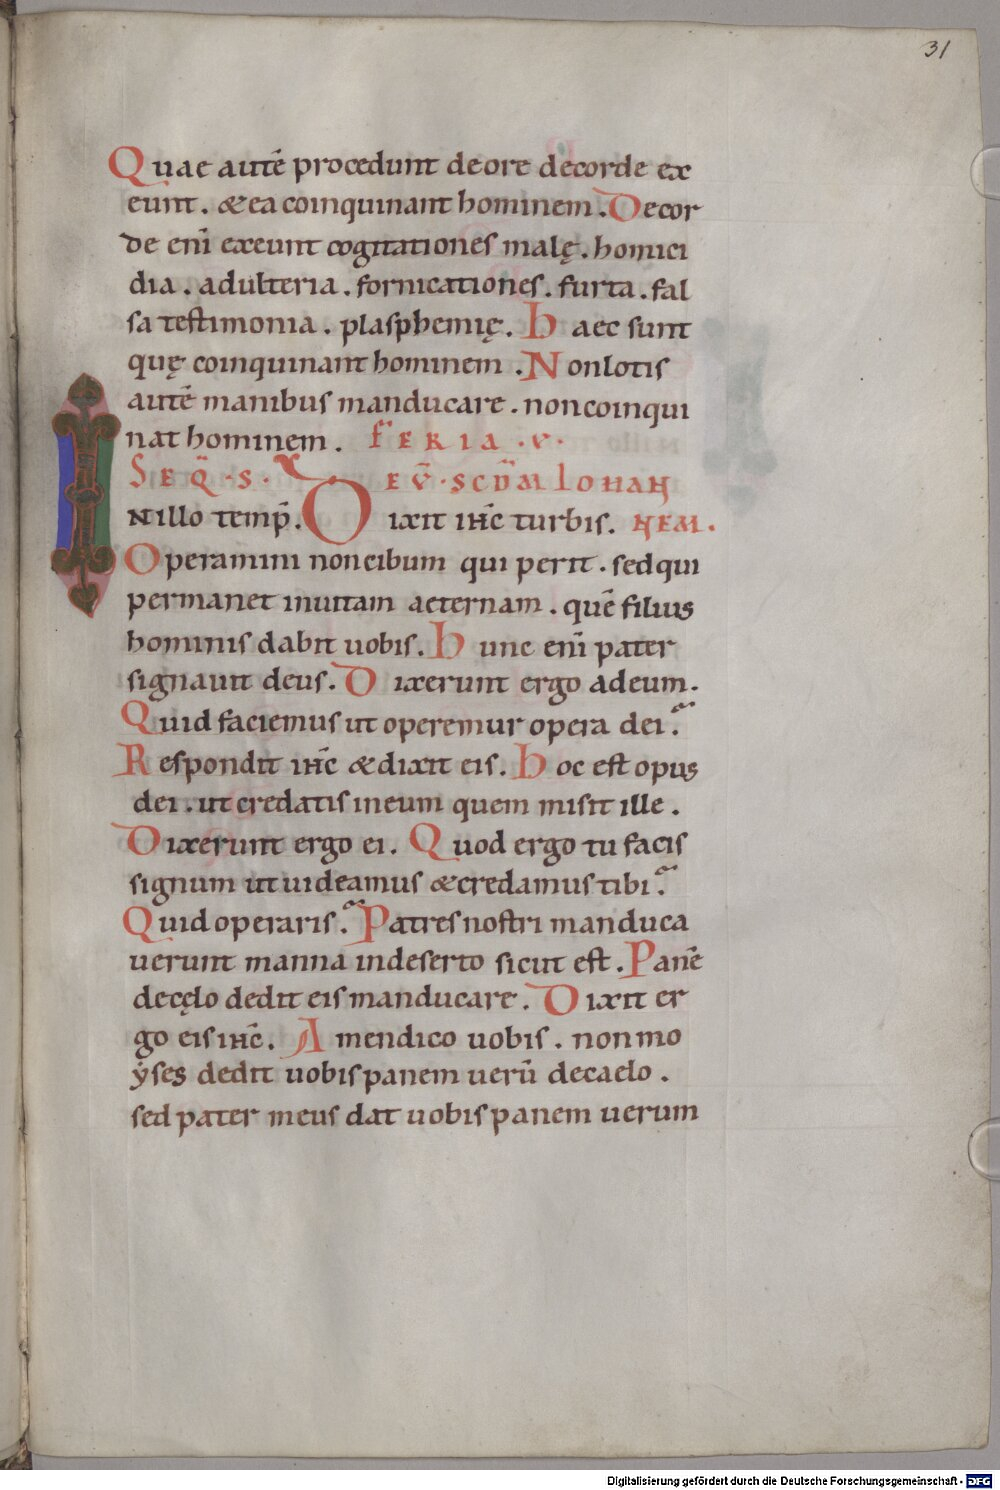 31
Quae autē procedunt deore decorde ex
eunt. & ea coinquinant hominem. Decor
de enī exeunt cogitationes malę. homici
dia. adulteria. fornicationes. furta. fal
sa testimonia. plasphemię. Haec sunt
quę coinquinant hominem. Nonlotis
autē manibus manducare. noncoinqui
nat hominem. FERIA .V.
SEQ̄.S. EV̄.SCD̄M IOHAN
INillo temp̄. Dixit iħc turbis. NEM.
Operamini noncibum qui perit. sedqui
permanet inuitam aeternam. quē filius
hominis dabit uobis. Hunc enī pater
signauit deus. Dixerunt ergo adeum.
Quid faciemus ut operemur opera dei?
Respondit iħc & dixit eis. Hoc est opus
dei. ut credatis ineum quem misit ille.
Dixerunt ergo ei. Quod ergo tu facis
signum ut uideamus & credamus tibi?
Quid operaris? Patres nostri manduca
uerunt manna indeserto sicut est. Panē
decęlo dedit eis manducare. Dixit er
go eis iħc. Amendico uobis. non mo
ẏses dedit uobis panem uerū decaelo.
sed pater meus dat uobis panem uerum
Digitalisierung gefördert durch die Deutsche Forschungsgemeinschaft - DFG